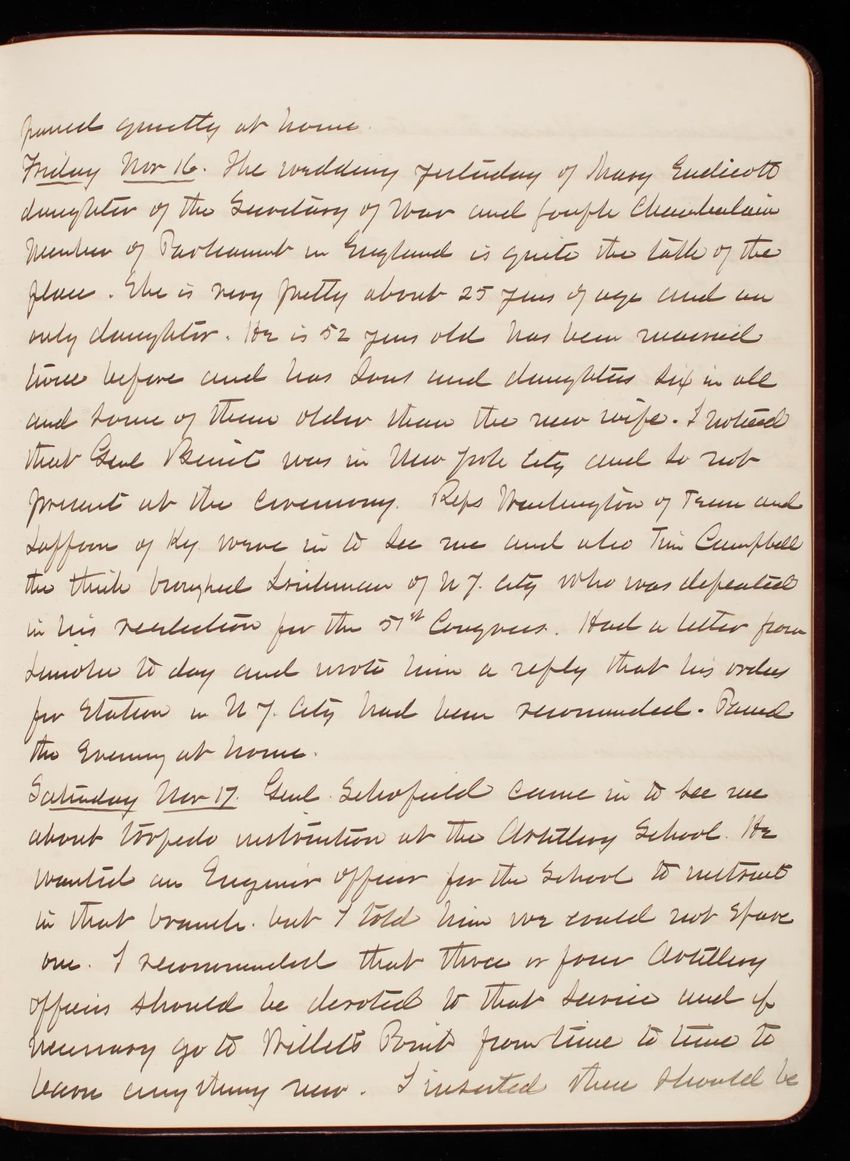 passed quietly at home.
Friday Nov 16. The wedding yesterday of Mary Endicott
daughter of the Secretary of War and Joseph Chamberlain
Member of Parliament in England is quite the talk of the
place. She is very pretty about 25 years of age and an
only daughter. He is 52 years old has been married
twice before and has sons and daughters six in all
and some of them older than the new wife. I noticed
that Genl Benet was in New York City and so not
present at the ceremony. Reps Washington of Tenn and
Laffoon of Ky were in to see me and also Tim Campbell
the thick brogued Irishman of N Y. City who was defeated
in his reelection for the 51st Congress. Had a letter from
Lincoln to day and wrote him a reply that his orders
for Station in N Y. City had been recommended. Passed
the Evening at home.
Saturday Nov 17. Genl. Schofield came in to see me
about torpedo instruction at the Artillery School. He
wanted an Engineer officer for the School to instruct
in that branch. but I told him we could not spare
one. I recommended that three or four Artillery
officers should be devoted to that service and if
necessary go to Willets Point from time to time to
learn anything new. I insisted there should be